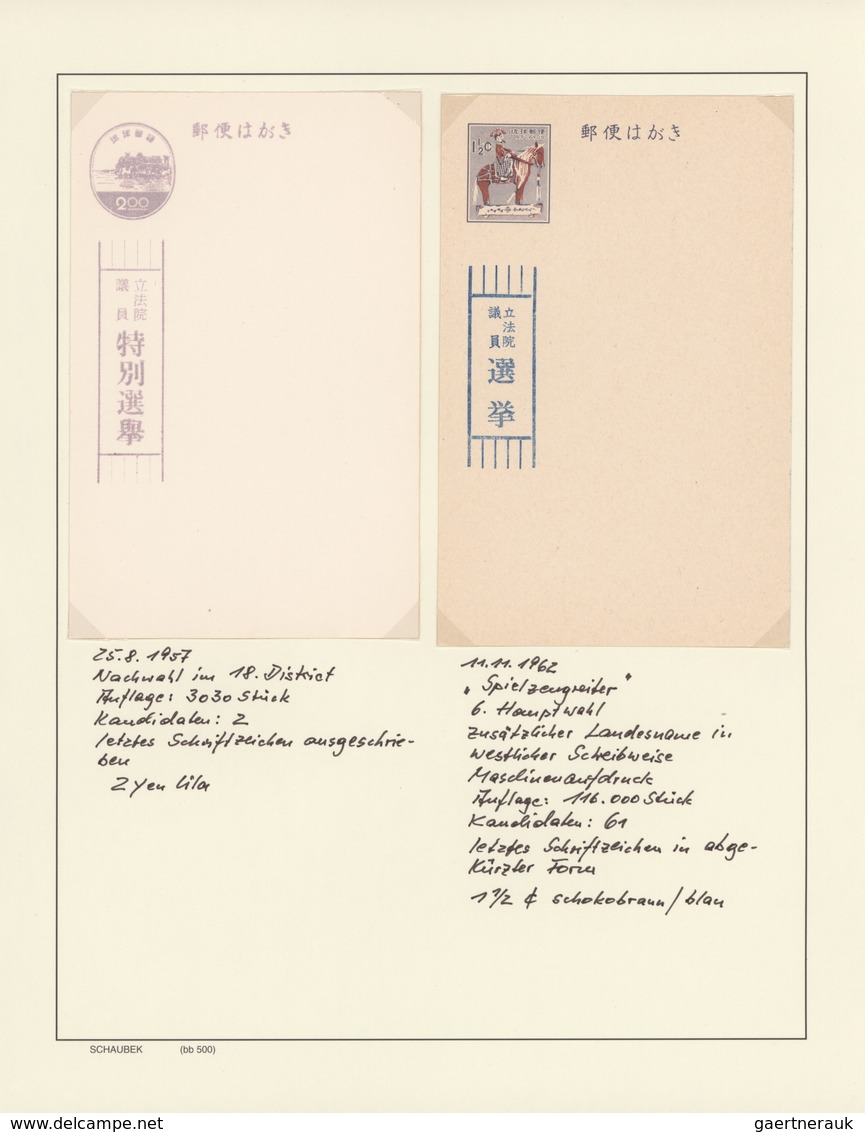 郵便はがき
琉球郵便
2.00
立法院
議員
特別選擧
郵便はがき
琉球郵便
1½¢
立法院
議員
選挙
25.8.1957
Nachwahl im 18. District
Auflage: 3030 Stück
Kandidaten: 2
letztes Schriftzeichen ausgeschrie-
ben
2 Yen lila
11.11.1962
"Spielzeugreiter"
6. Hauptwahl
zusätzlicher Landesname in
westlicher Schreibweise
Maschinenaufdruck
Auflage: 116.000 Stück
Kandidaten: 61
letztes Schriftzeichen in abge-
kürzter Form
1 1/2 ¢ schokobraun/blau
SCHAUBEK (bb 500)
www.delcampe.net
gaertnerauk